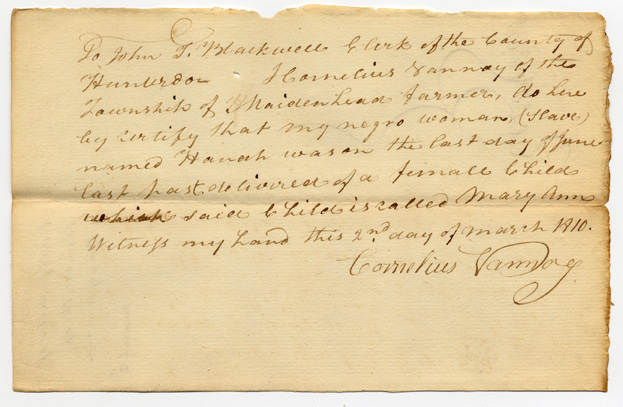 To John T. Blackwell Clerk of the County of
Hunterdon I Cornelius Vannoy of the
Township of Maidenhead farmer, do here
by certify that my negro woman (slave)
named Hanah was on the last day of June
last past delivered of a female Child
which said Child is called Mary Ann
Witness my hand this 2nd day of March 1810.
Cornelius Vannoy